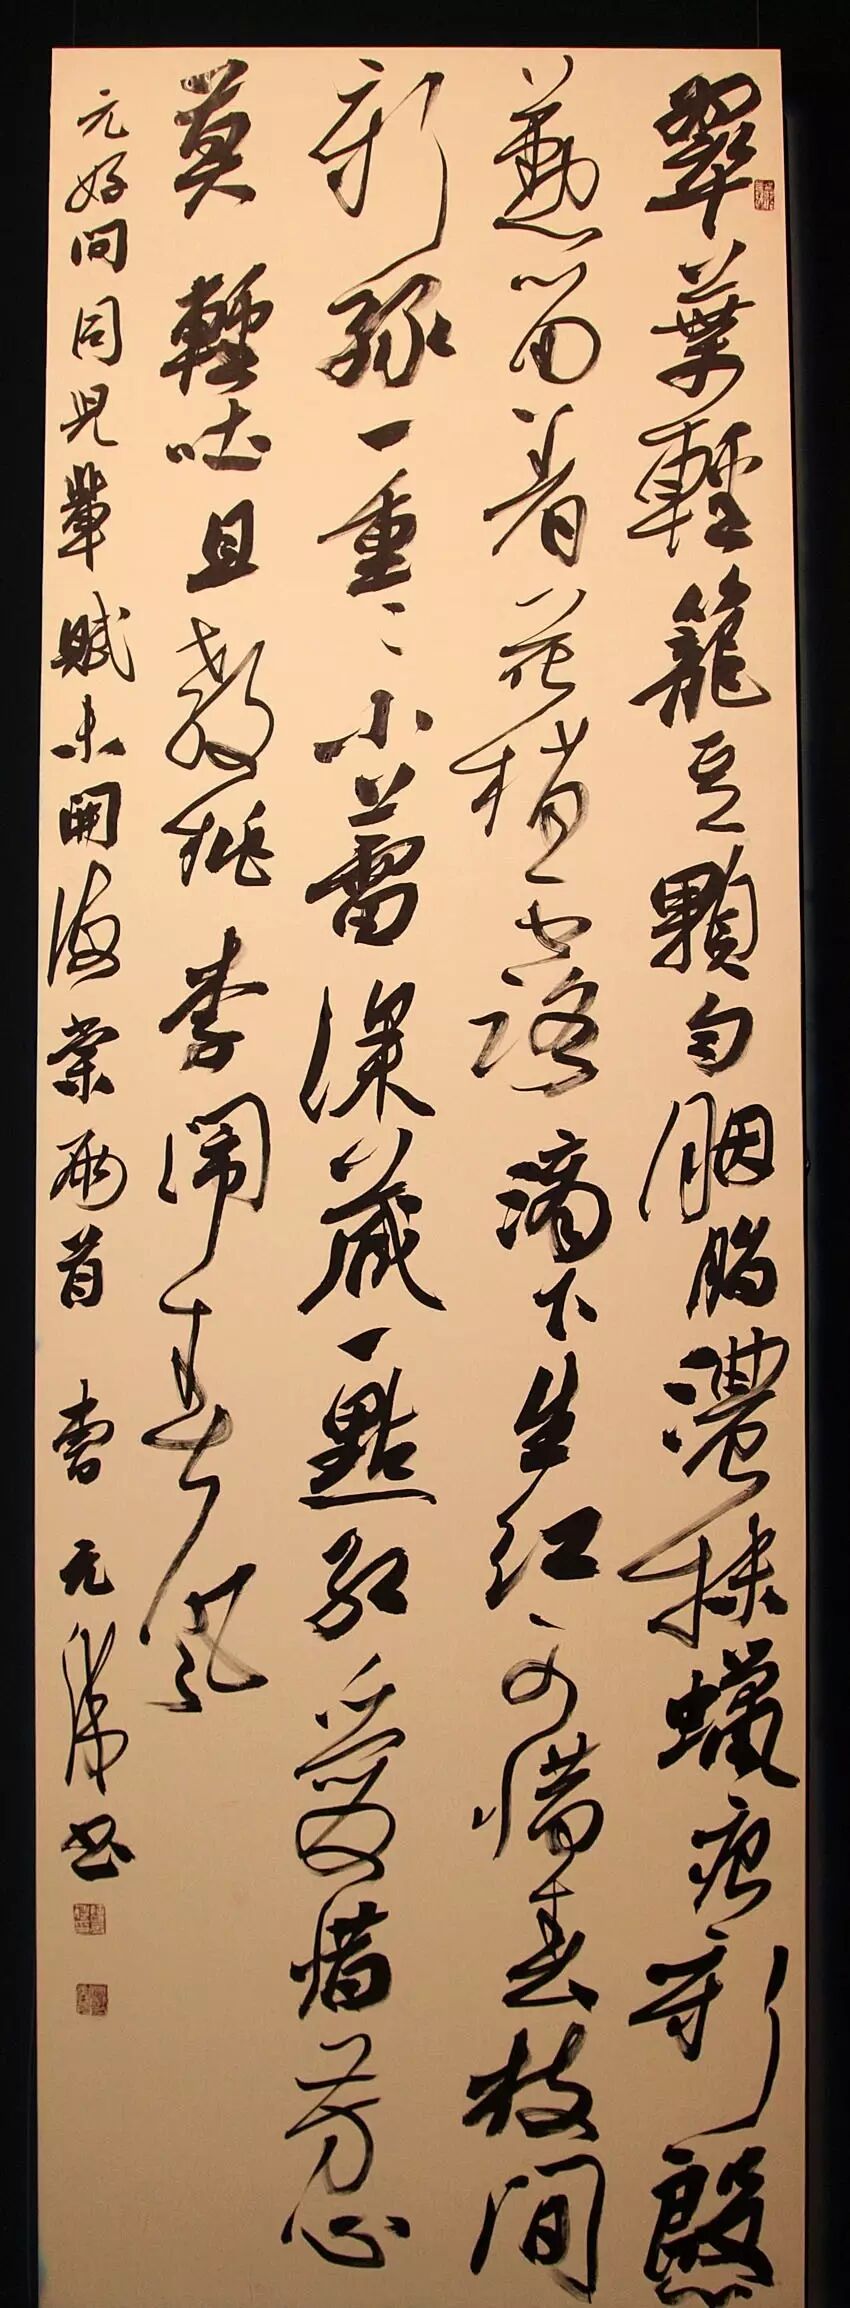 翠葉輕籠豆顆勻胭脂濃抹蠟痕新慇
懃留着花梢露滴下生红可惜春枝間
新緑一重〻小蕾深藏一點紅愛惜芳心
莫輕吐且教桃李闹春風
元好问同兒輩賦未開海棠兩首 曹元 书